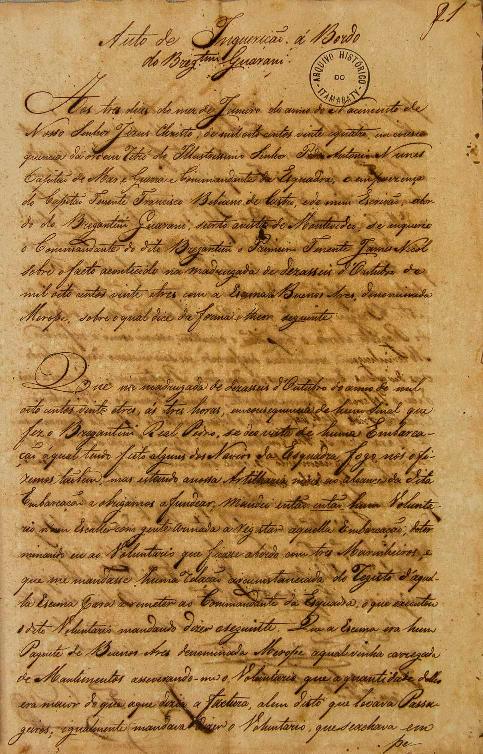 f 1
Auto de Inquerição á Bordo
do Bergtim Guarani
ARQUIVO HISTÓRICO
DO
ITAMARATY
Aos tres dias do mez de Janeiro do anno do Nacimento de
Nosso Senhor Jezus Christo, de mil oito centos vinte e quatro em conse
quencia da ordem do Illustrissimo Senhor Pedro Antonio Nunes
Capitão de Mar e Guerra e Commandante da Esquadra, e em prezença
do Capitão Tenente Francisco de e de mim Escrivão, abor
do do Bregantim Guarani, surto avista de Montevideo, se inquerio
o Commandante do dito Bregantim o Primeiro Tenente James Nicol
sobre o facto acontecido na madrugada de dezasseis d'Outubro de
mil oito centos vinte e tres com a Escuna de Buenos Ayres denominada
Merope, sobre o qual disse da forma e theor seguinte
Que na madrugada de dezasseis d'Outubro do anno de mil
oito centos vinte e tres, as tres horas, em consequencia de hum Sinal que
fez o Bregantim Real Pedro, se deo vista de huma Embarca-
ção aqual tendo feito alguns dos Navios da Esquadra fogo nós ofi-
zemos tambem, mas estando a nossa Artilharia mais ao alcance da dita
Embarcação a obrigamos a fundear, mandei então hum Volunta-
rio n'um Escaler com gente armada a registar aquella Embarcação, deter
minando eu ao Voluntario que ficasse abordo com tres Marinheiros, e
que me mandasse huma relação circunstanciada do Registo d'aquel-
la Escuna para o remeter ao Commandante da Esquadra, o que executou
o dito Voluntario mandando dizer o seguinte Que a Escuna era hum
Paquete de Buenos Ayres denominada Merope aqual vinha carregada
de Mantimentos asseverando-me o Voluntario que a quantidade delles
era maior do que a que dizia a factura, alem disto que levava Passa-
geiros, igualmente mandava dizer o Voluntario, que se achava em
pe-